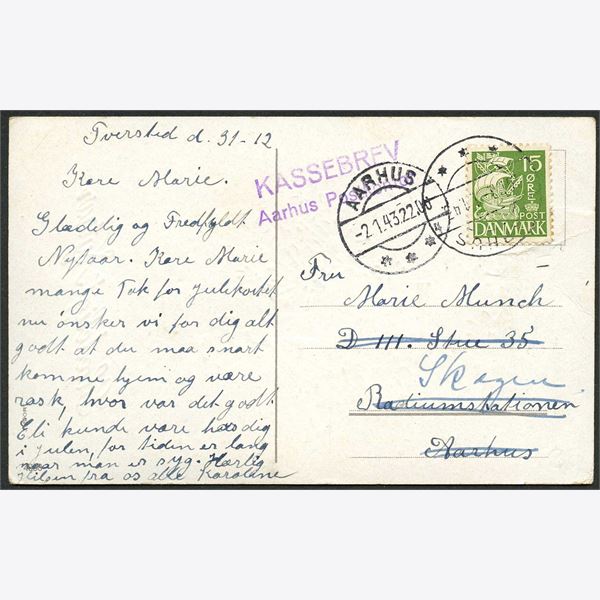 Tversted d. 31-12
Kære Marie.
Glædelig og Fredfyldt
Nytaar. Kære Marie
mange Tak for Julekortet
nu ønsker vi for dig alt
godt at du maa snart
komme hjem og være
rask, hvor var det godt
Eli kunde være hos dig
i Julen, for tiden er lang
naar man er syg. Hærlig
Hilsen fra os alle Karoline
KASSEBREV
Aarhus
AARHUS
-2.1.43.22.00
15
ØRE
POST
DANMARK
Fru
Marie Munch
D III. Stue 35
Skagen
Radiumstationen
Aarhus